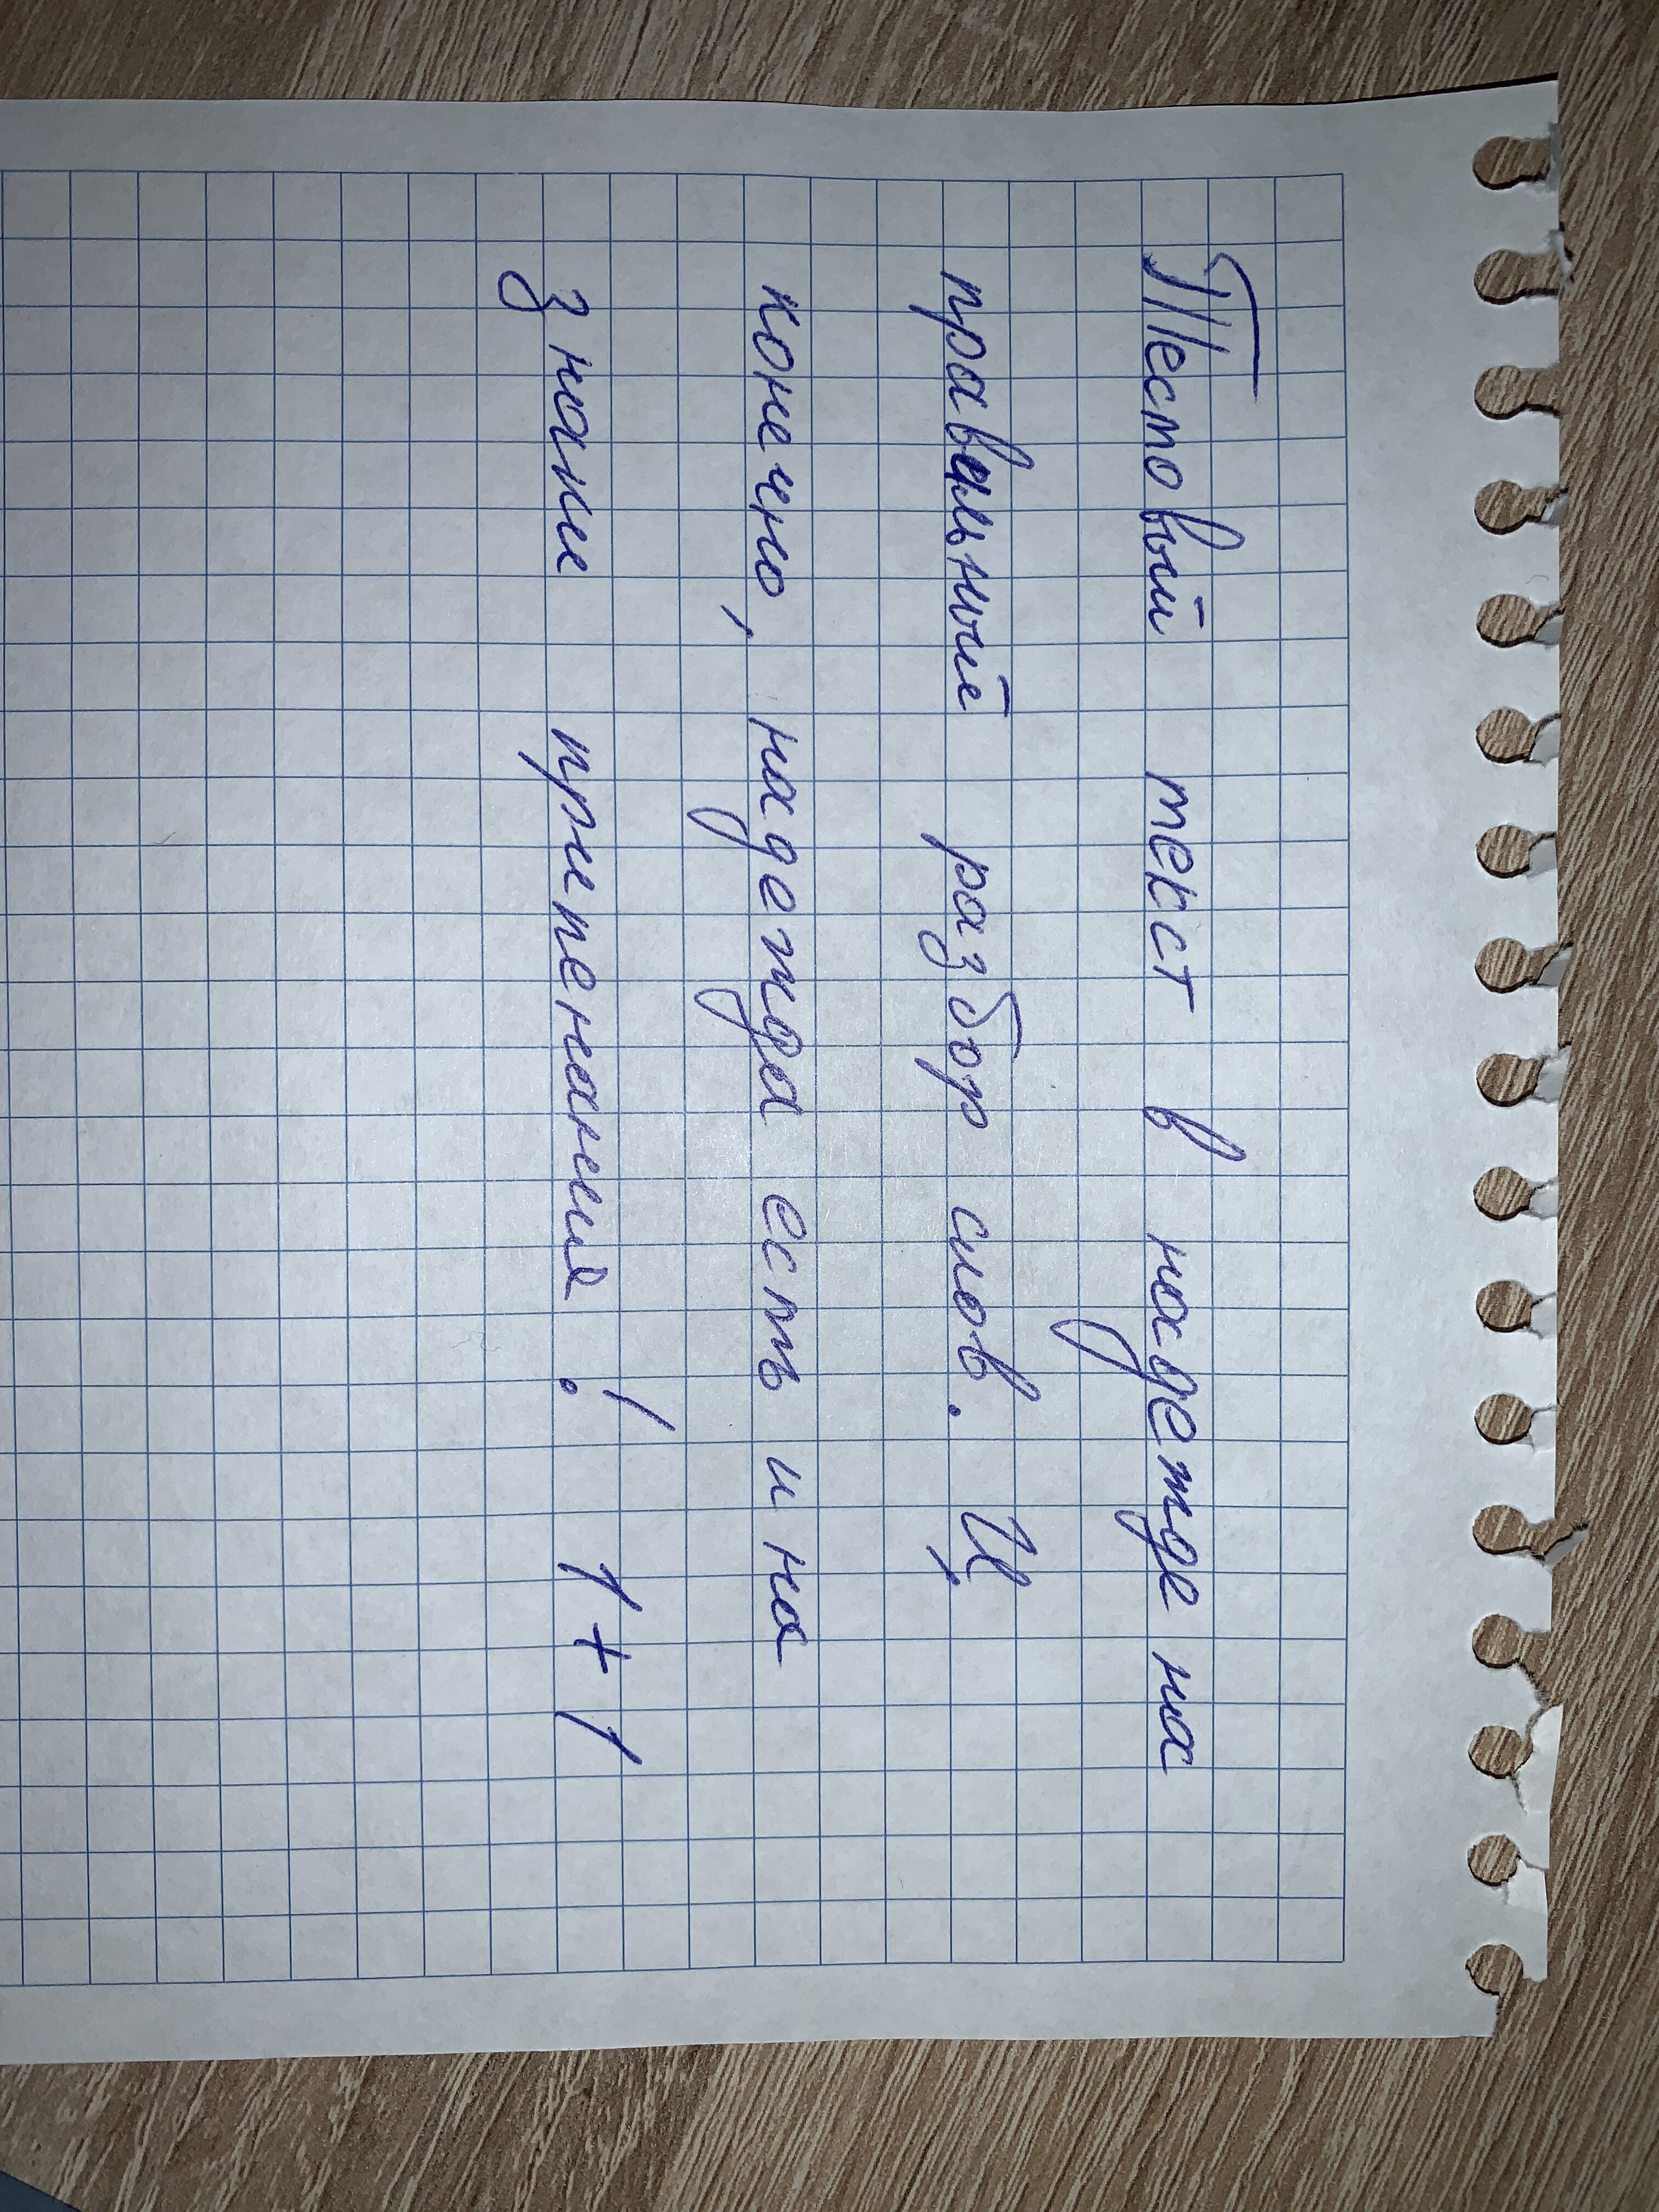 Тестовый текст в надежде на
правильный разбор слов. И,
конечно, надежда есть и на
знаки припенания! 1+1